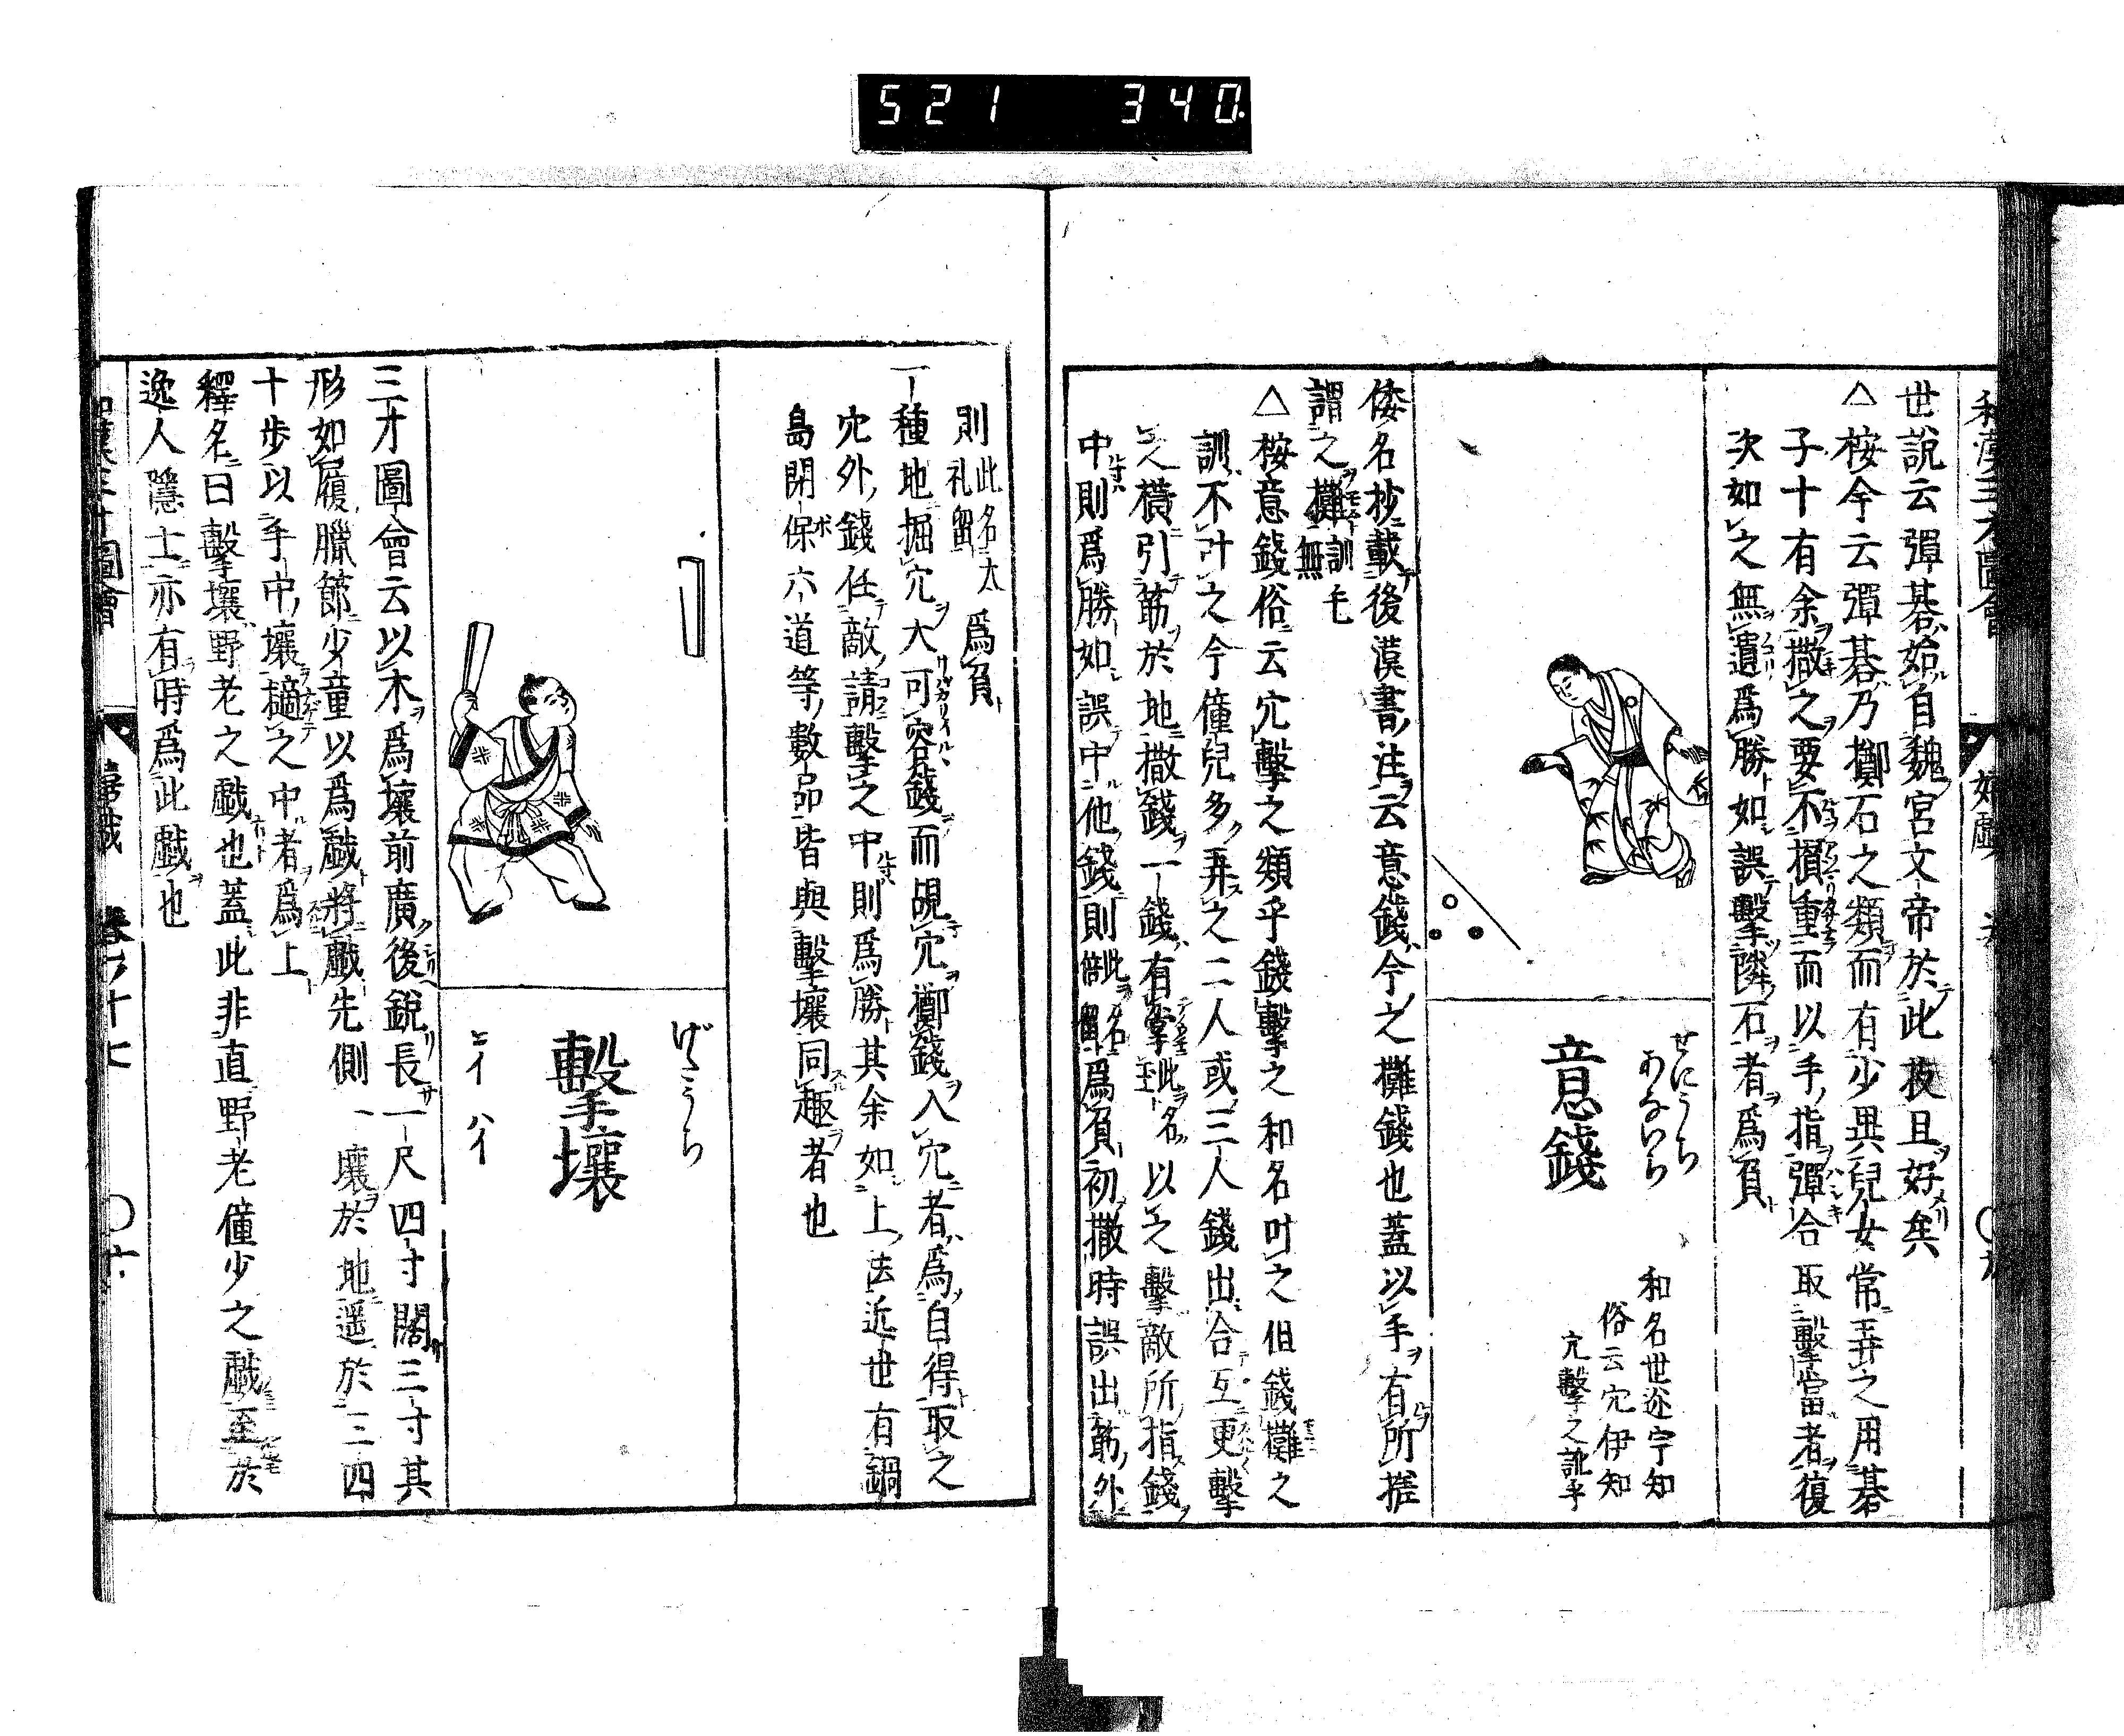 521 340.
世說云彈碁始自魏宮文帝於此技且好矣
△桉今云彈碁乃擲石之類而有少異兒女常弄之用碁
子十有余撒之要不損重而以手指彈合取擊當者復
次如之無遺爲勝如誤擊隣石者爲負
せにうち
あないち
意錢
和名世迩宇知
俗云穴伊知
穴擊之訛乎
倭名抄載後漢書注云意錢今之攤錢也蓋以手有所搓
謂之攤訓毛無
△桉意錢俗云穴擊之類乎錢擊之和名叶之但錢攤之
訓不叶之今僮兒多弄之二人或三人錢出合互更擊
之橫引筯於地撒錢一錢有掌此名至以之擊敵所指錢
中則爲勝如誤中他錢則此名倍畱爲負初撒時誤出筯外
則此名太礼畱爲負
一種地掘穴大可容錢而覘穴擲錢入穴者爲自得取之
穴外錢任敵請擊之中則爲勝其余如上法近世有鍋
島閉保六道等數品皆與擊壤同趣者也
げきうち
擊壤
ヱイ ハイ
三才圖會云以木爲壤前廣後銳長一尺四寸闊三寸其
形如履臘節少童以爲戲將戲先側一壤於地遥於三四
十步以手中壤擿之中者爲上
釋名曰擊壤野老之戲也蓋此非直野老僮少之戲至於
逸人隱士亦有時爲此戲也